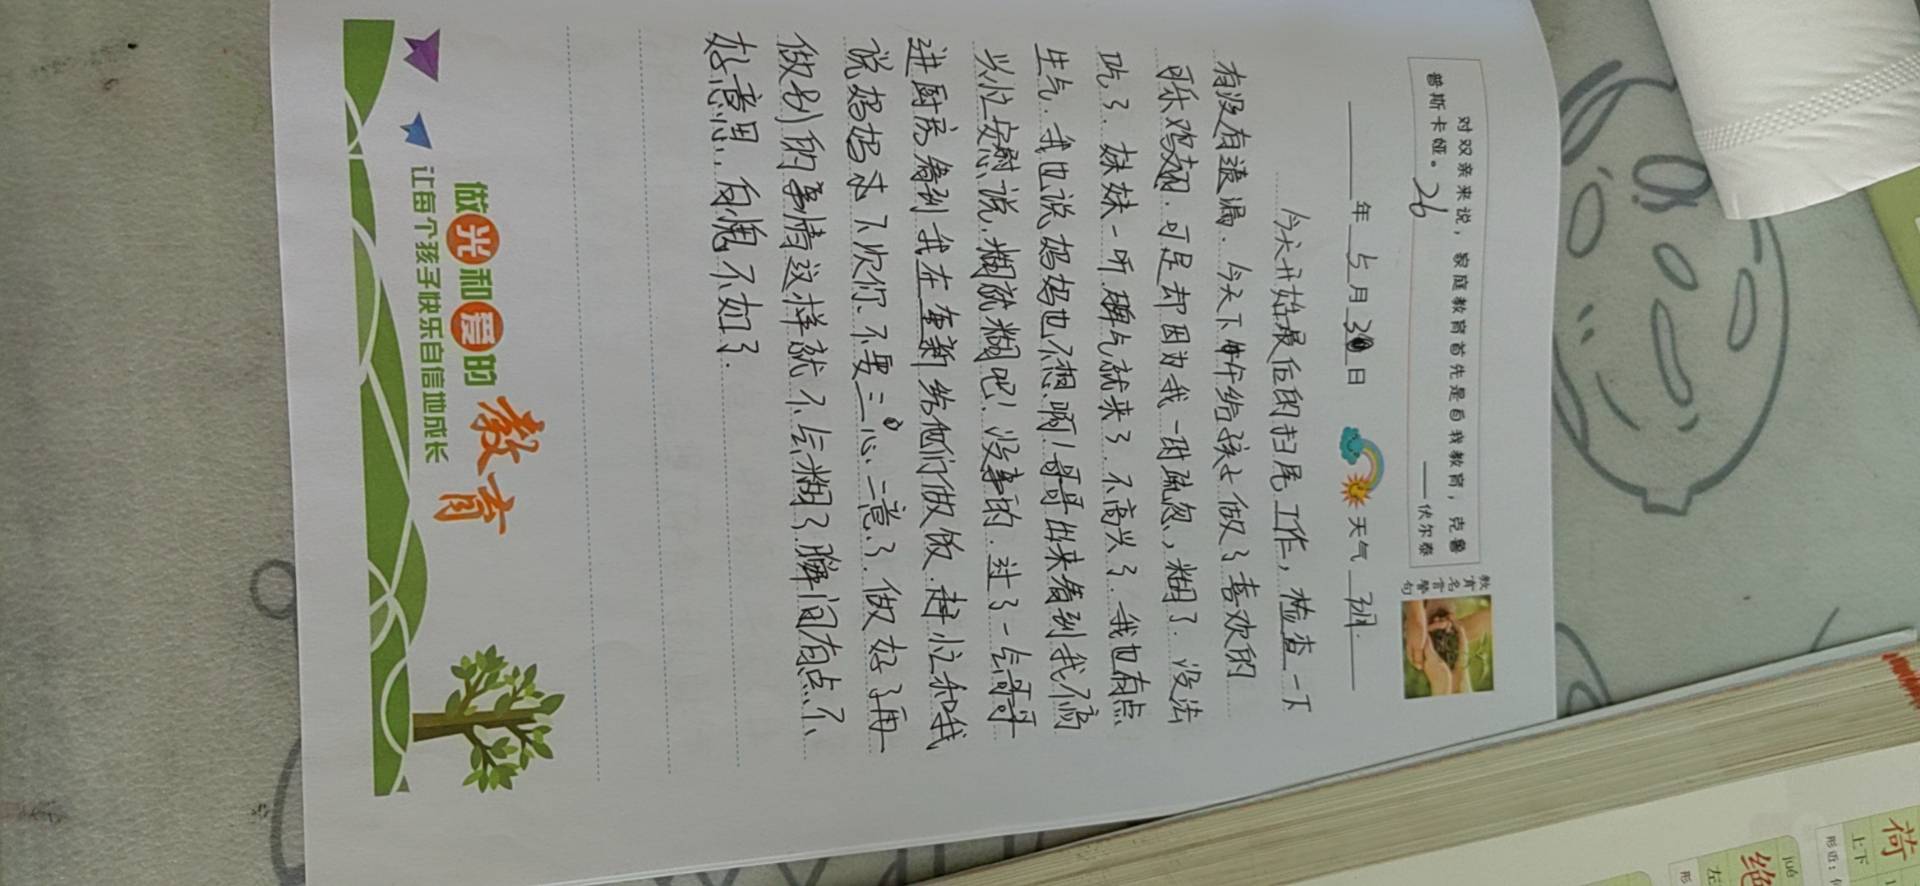 对双亲来说，家庭教育首先是自我教育，克鲁
普斯卡娅。
——伏尔泰
26
教育名言警句
年 5 月 30 日 天气 晴.
今天开始最后的扫尾工作，检查一下
有没有遗漏.今天下午给孩子做了喜欢的
可乐鸡翅.可是却因为我一时疏忽,糊了.没法
吃了.妹妹一听脾气就来了.不高兴了.我也有点
生气.我也说妈妈也不想啊!哥哥出来看到我不高
兴忙安慰说.糊就糊吧!没事的.过了一会哥哥
进厨房看到我在重新给他们做饭.赶忙和我
说妈妈下次你不要三心二意了.做好了再
做别的事情这样就不会糊了瞬间有点不
好意思.自愧不如了.
做光和爱的教育
让每个孩子快乐自信地成长
荷
上下
绝
jué
左